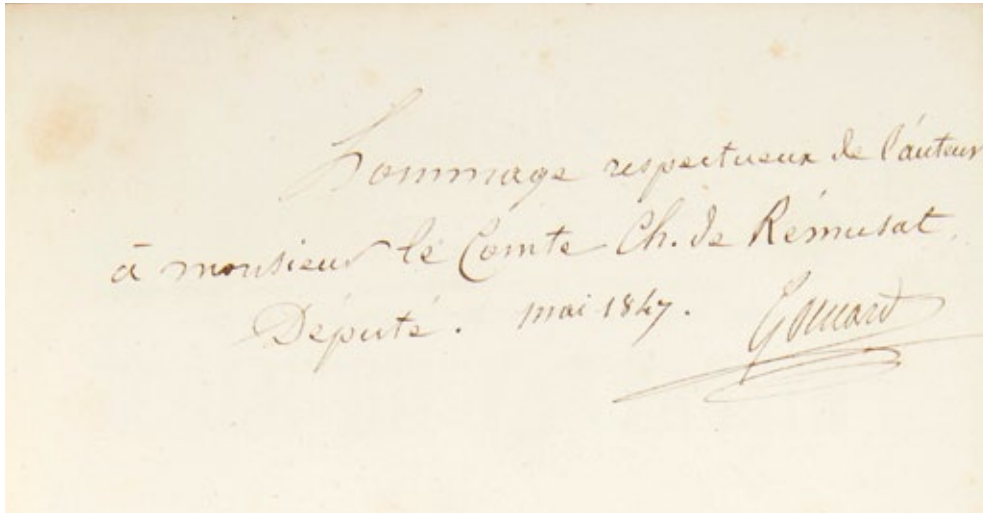 hommage respectueux de l'auteur
à monsieur le Comte Ch. de Rémusat.
Député. mai 1847.